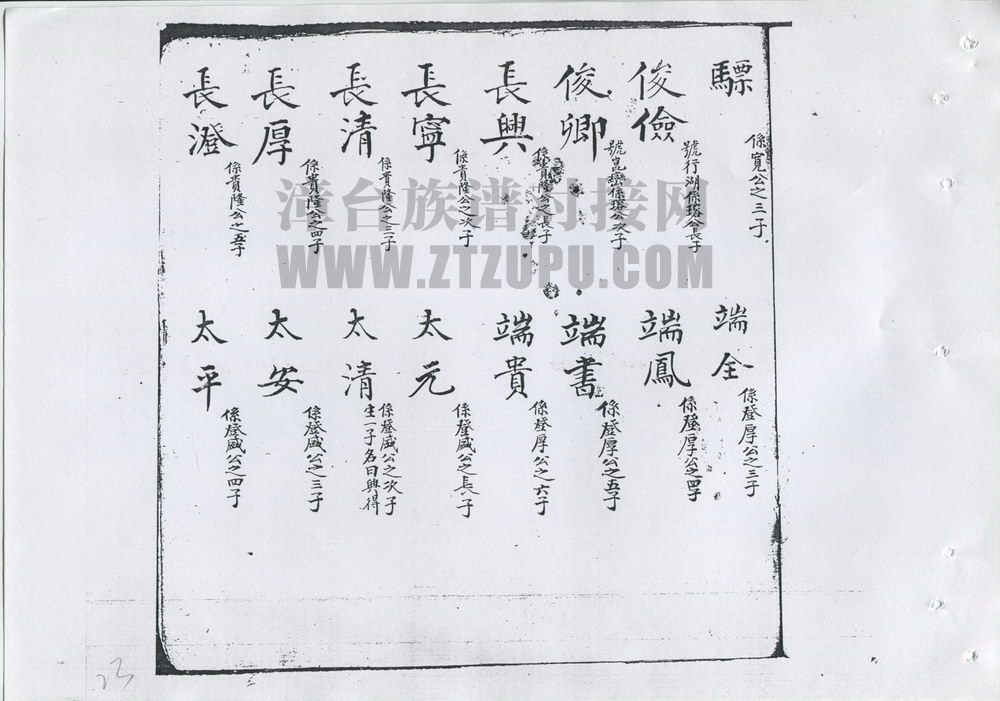 驃
係寬公之三子
俊儉
號行湖係瑢公長子
俊卿
號崑巒係瑢公次子
長興
係貴隆公之長子
長寧
係貴隆公之次子
長清
係貴隆公之三子
長厚
係貴隆公之四子
長澄
係貴隆公之五子
端全
係登厚公之三子
端鳳
係登厚公之四子
端書
係登厚公之五子
端貴
係登厚公之六子
太元
係登盛公之長子
太清
係登盛公之次子
生一子名曰興得
太安
係登盛公之三子
太平
係登盛公之四子
漳台族谱对接网
WWW.ZTZUPU.COM
23